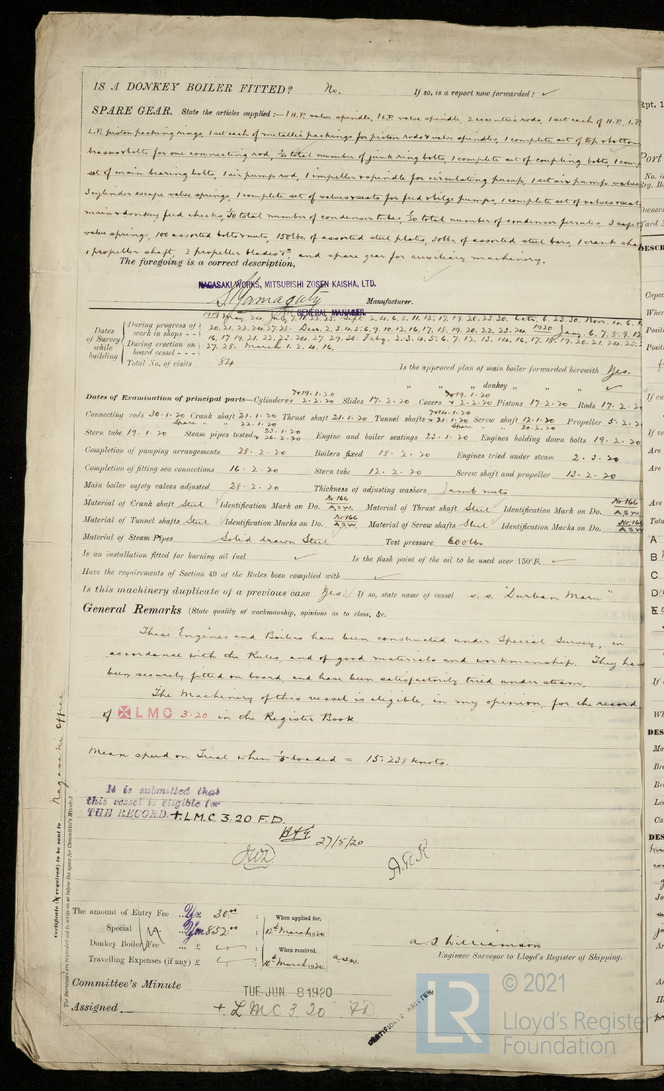 IS A DONKEY BOILER FITTED? No. If so, is a report now forwarded? ✓
SPARE GEAR. State the articles supplied:— 1 H.P. valve spindle, 1 L.P. valve spindle 2 eccentric rods, 1 set each of H.P. I.P.
L.P. piston packing rings, 1 set each of metallic packings for piston rods & valve spindles, 1 complete set of top & bottom
brasses & bolts for one connecting rod, total number of junk ring bolts, 1 complete set of coupling bolts, 1 comp
set of main bearing bolts, 1 air pump rod, 1 impeller & spindle for circulating pump, 1 set air pump valves
3 cylinder escape valve springs, 1 complete set of valves & seats for feed & bilge pumps, 1 complete set of valves & seats
main & donkey feed checks, total number of condenser tubes, total number of condenser ferrules, 3 safety
valve springs, 100 assorted bolts & nuts, 150lbs. of assorted steel plates, 30lbs. of assorted steel bars, 1 crank shaft
1 propeller shaft, 2 propeller blades &c. and spare gear for auxiliary machinery.
The foregoing is a correct description,
NAGASAKI WORKS, MITSUBISHI ZOSEN KAISHA, LTD.
Manufacturer.
GENERAL MANAGER.
Dates of Survey while building
During progress of work in shops - -
During erection on board vessel - - -
20. 21. 22. 24. 27. 28. Dec. 2. 3. 4. 5. 6. 9. 10. 12. 16. 17. 18. 19. 20. 22. 23. 24. 1920 Jany. 6. 7. 8. 9. 12
16. 17. 19. 21. 22. 23. 24. 27. 29. 30. Feby. 2. 3. 4. 5. 6. 7. 12. 13. 14. 16. 17. 18. 19. 20. 21. 24. 25.
27. 28. March 1. 2. 4. 16.
Total No. of visits 84
Is the approved plan of main boiler forwarded herewith Yes.
" " " donkey " " " ✓
Dates of Examination of principal parts—Cylinders 19.1.20 & 2.2.20 Slides 17.2.20 Covers 19.1.20 & 2.2.20 Pistons 17.2.20 Rods 17.2.2
Connecting rods 30.1.20 Crank shaft 21.1.20 Thrust shaft 21.1.20 Tunnel shafts & 21.1.20 Screw shaft 12.1.20 Propeller 5.2.2
Spare " " 22.1.20 Spare " 20.2.20
Stern tube 19.1.20 Steam pipes tested 23.1.20 & 26.2.20 Engine and boiler seatings 23.1.20 Engines holding down bolts 19.2.20
Completion of pumping arrangements 28.2.20 Boilers fixed 18.2.20 Engines tried under steam 2.3.20
Completion of fitting sea connections 16.2.20 Stern tube 12.2.20 Screw shaft and propeller 13.2.20
Main boiler safety valves adjusted 28.2.20 Thickness of adjusting washers Jamb nuts
Material of Crank shaft Steel Identification Mark on Do. No 166 A.S.W. Material of Thrust shaft Steel Identification Mark on Do. No 166 A.S.W.
Material of Tunnel shafts Steel Identification Marks on Do. No 166 A.S.W. Material of Screw shafts Steel Identification Marks on Do. No 166 A.S.W.
Material of Steam Pipes Solid drawn Steel ✓ Test pressure 600 lbs
Is an installation fitted for burning oil fuel ✓ Is the flash point of the oil to be used over 150°F. ✓
Have the requirements of Section 49 of the Rules been complied with ✓
Is this machinery duplicate of a previous case Yes. If so, state name of vessel s.s. "Durban Maru"
General Remarks (State quality of workmanship, opinions as to class, &c.
These Engines and Boilers have been constructed under Special Survey, in
accordance with the Rules, and of good materials and workmanship. They have
been securely fitted on board, and have been satisfactorily tried under steam.
The Machinery of this vessel is eligible, in my opinion, for the record
of ✠ LMC 3.20 in the Register Book
Mean speed on Trial when loaded = 15.238 knots.
It is submitted that
this vessel is eligible for
THE RECORD. + L.M.C. 3.20 F.D.
27/5/20
A.R.R
Certificate (if required) to be sent to Nagasaki Office
The Surveyors are requested not to write on or below the space for Committee's Minute.
The amount of Entry Fee .. Yen 30.00 : When applied for,
Special .. Yen 852.00 : 12th March 1920
Donkey Boiler Fee ... £ ✓ : When received,
Travelling Expenses (if any) £ ✓ : 16th March 1920 a.s.w.
A. S. Williamson
Engineer Surveyor to Lloyd's Register of Shipping.
Committee's Minute TUE JUN 8 1920
Assigned + LMC 3 20 FD
CERTIFICATE WRITTEN
LR
© 2021
Lloyd's Register
Foundation